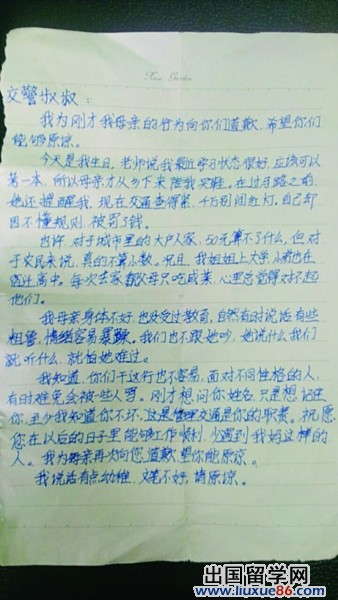 交警叔叔：
我为刚才我母亲的行为向你们道歉，希望你们
能够原谅。
今天是我生日，老师说我最近学习状态很好，应该可以
第一本，所以母亲才从乡下来陪我买鞋。在过马路之前，
她还提醒我，现在交通查得紧，千万别闯红灯，自己却
因不懂规则，被罚了钱。
也许，对于城市里的大户人家，50元算不了什么，但对
于农民来说，真的不算小数。况且，我姐姐上大学，
高中。每次去家都父母只吃咸菜，心里总觉得对不起
他们。
我母亲身体不好，也没受过教育，自然有时说话有些
粗鲁，情绪容易暴躁。我们也不跟她吵，她说什么我们
就听什么，就怕她难过。
我知道，你们干这行也不容易，面对不同性格的人，
有时难免会被些人骂。刚才想问你姓名，只是想记住
你，至少我知道你不坏，这是管理交通是你的职责。祝愿
您在以后的日子里能够工作顺利，少遇到我妈这样的
人。我为母亲再次向您道歉，望你能原谅。
我说话有点幼稚，文笔不好，请原谅。
出国留学网
www.liuxue86.com